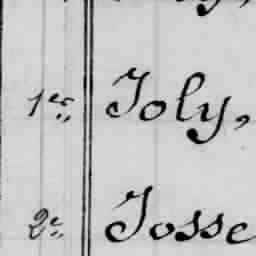 1er., Joly,
2e., Josse